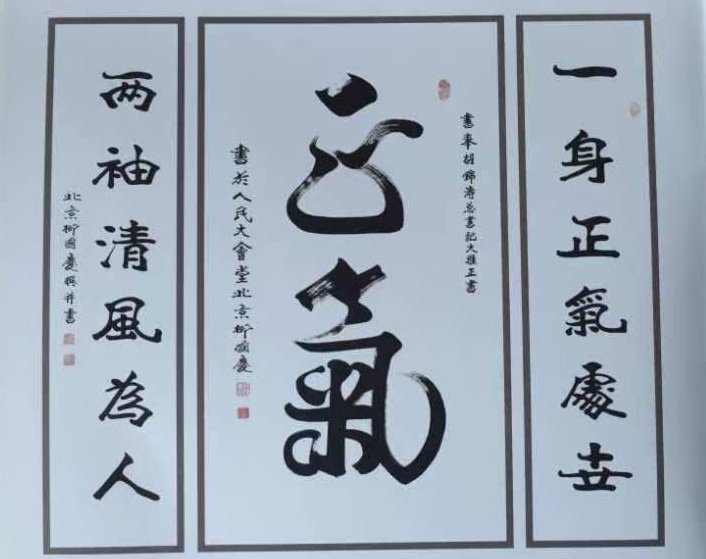 一身正氣處世
正氣
書奉胡錦濤总書記大雅正書
書於人民大會堂北京柳國慶
两袖清風為人
北京柳國慶撰并書